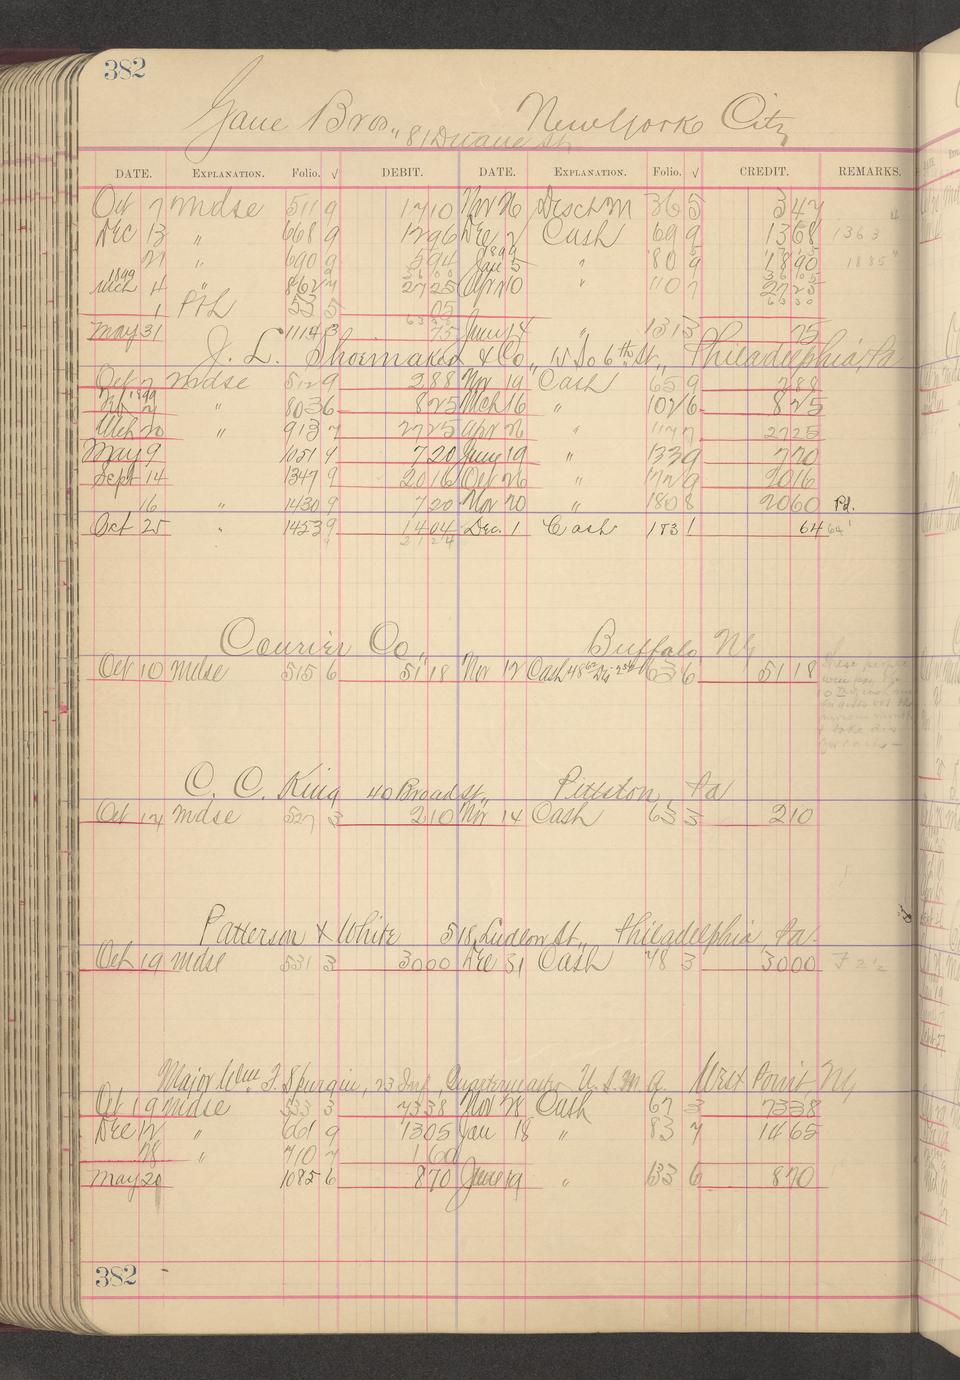 382
Gane Bros., 81 Duane St. New York City
DATE. EXPLANATION. Folio. √ DEBIT. DATE. EXPLANATION. Folio. √ CREDIT. REMARKS.
Oct 7 Mdse 511 9 17 10 Nov 26 36 5 3 42
Dec 13 " 668 9 12 96 Dec 2 Cash 69 9 13 68 1363
21 " 690 9 5 94 1899 Jan 5 " 80 9 18 90 1885
1899 Mch 4 " 862 27 25 Apr 10 " 110 7 27 25
1 53 5 05
May 31 1114 3 75 June 14 " 131 3 75
J. L. Shoemaker & Co., 15 So 6th St., Philadelphia, Pa
Oct 7 Mdse 512 9 2 88 Nov 19 Cash 65 9 2 88
1899 " 803 6 8 25 Mch 16 " 102 6 8 25
Mch 20 " 913 7 27 25 Apr 26 " 117 7 27 25
May 9 1051 9 7 20 June 19 " 133 9 7 20
Sept 14 1347 9 20 16 Oct 26 172 9 20 16
16 " 1430 9 7 20 Nov 20 " 180 8 20 60 Pd.
Oct 25 " 1453 9 14 04 Dec. 1 Cash 183 1 64 64
21 24
Courier Co., Buffalo NY
Oct 10 Mdse 515 6 51 18 Nov 12 Cash 63 6 51 18
These people
C. C. King 40 Broad St., Pittston, Pa
Oct 17 Mdse 527 3 2 10 Nov 14 Cash 63 3 2 10
Patterson & White 518 Ludlow St., Philadelphia, Pa.
Oct 19 Mdse 531 3 30 00 Dec 31 Cash 78 3 30 00
Major Wm. F. Spurgin, 23 Inf, Quartermaster U.S.M.A. West Point NY
Oct 19 Mdse 533 3 73 38 Nov 28 Cash 67 3 73 38
Dec 12 " 661 9 13 05 Jan 18 " 83 7 14 65
28 " 710 7 1 60
May 20 1085 6 8 70 June 19 " 133 6 8 70
382